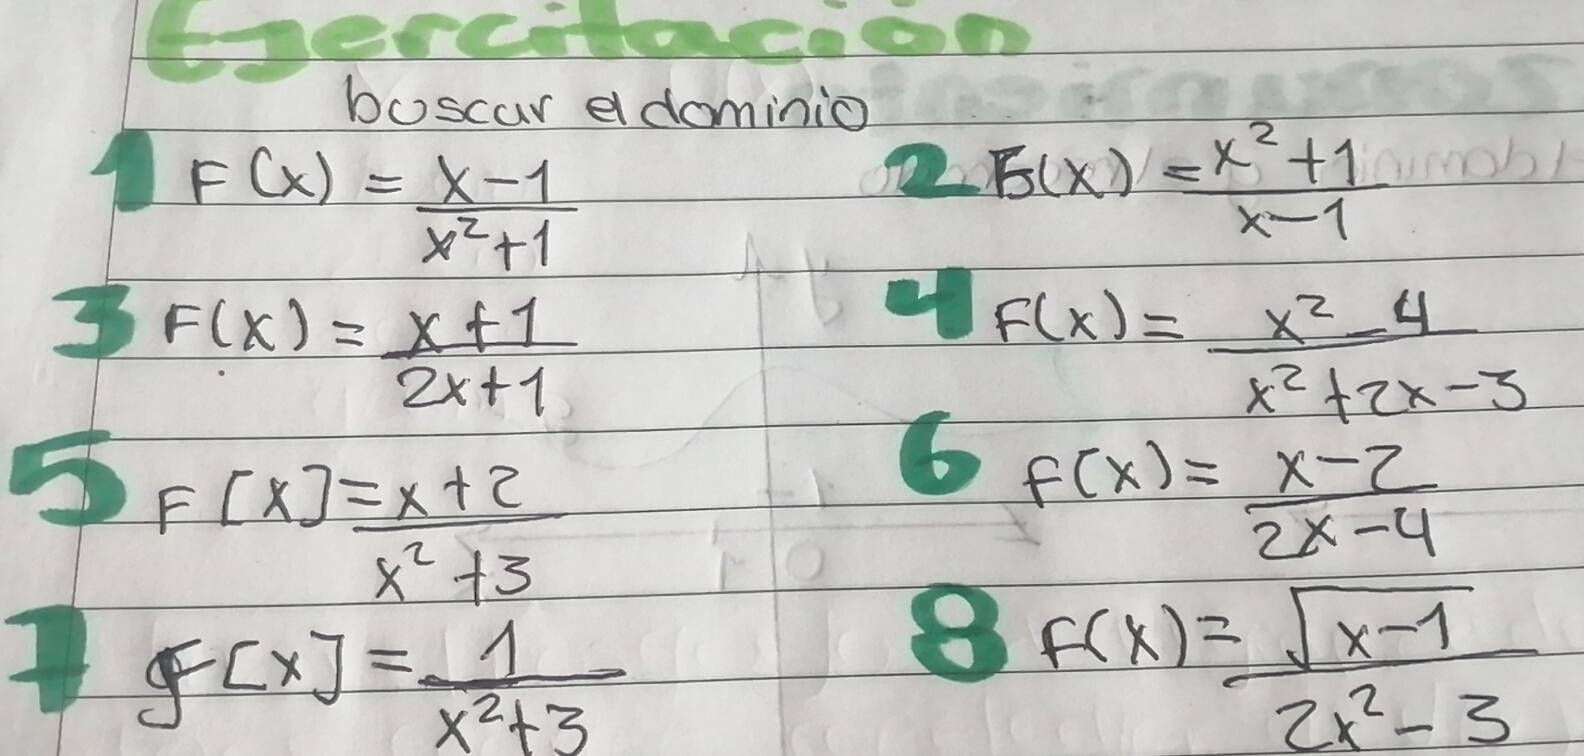 Ejercitación
buscar el dominio
1 F(x) = x-1 / x²+1
2 F(x) = x²+1 / x-1
3 F(x) = x+1 / 2x+1
4 F(x) = x²-4 / x²+2x-3
5 F[x] = x+2 / x²+3
6 F(x) = x-2 / 2x-4
7 F[x] = 1 / x²+3
8 F(x) = √x-1 / 2x²-3